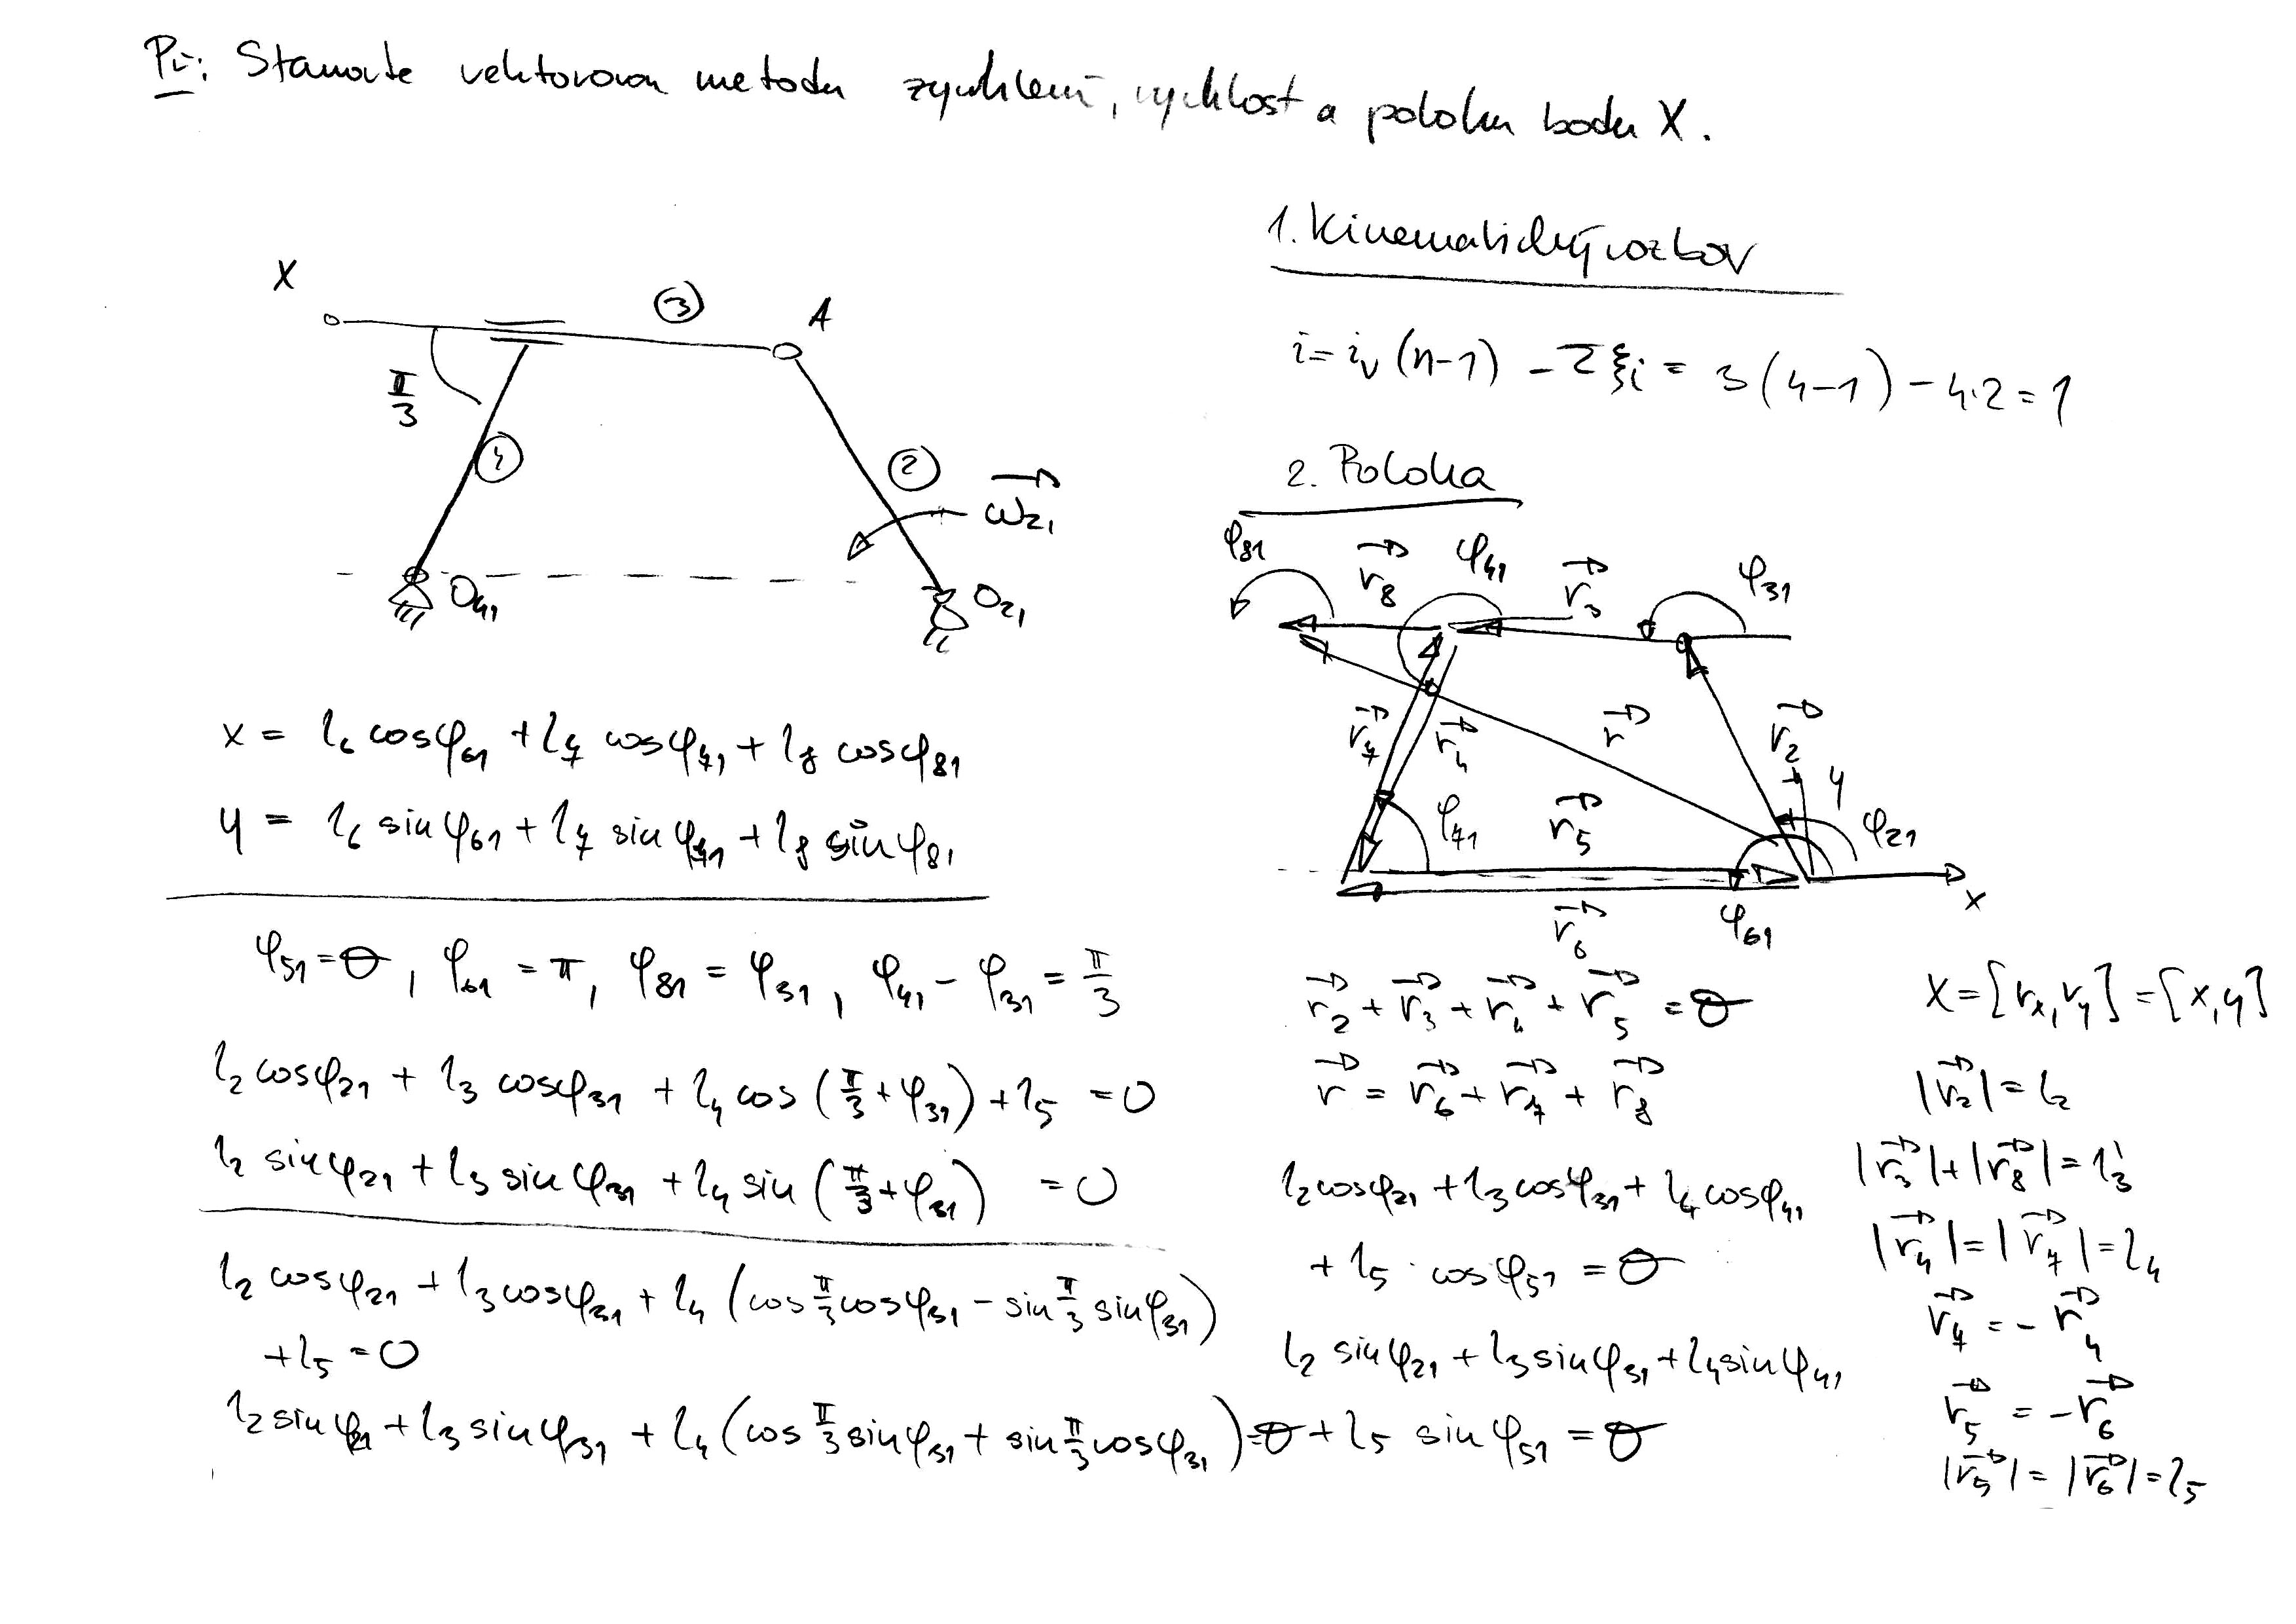 Př: Stanovte vektorovou metodu zrychlení, rychlost a polohu bodu X.
X
③
A
π/3
④
②
ω₂₁
O₄₁
O₂₁
1. Kinematický rozbor
i = iᵥ (n-1) - Σξᵢ = 3(4-1) - 4·2 = 1
2. Poloha
φ₈₁
r₈
φ₄₁
r₃
φ₃₁
r₇
r₄
r
r₂
y
φ₇₁
r₅
φ₂₁
x
r₆
φ₆₁
x = l₆ cosφ₆₁ + l₇ cosφ₇₁ + l₈ cosφ₈₁
y = l₆ sinφ₆₁ + l₇ sinφ₇₁ + l₈ sinφ₈₁
φ₅₁ = 0, φ₆₁ = π, φ₈₁ = φ₃₁, φ₄₁ - φ₃₁ = π/3
l₂ cosφ₂₁ + l₃ cosφ₃₁ + l₄ cos(π/3 + φ₃₁) + l₅ = 0
l₂ sinφ₂₁ + l₃ sinφ₃₁ + l₄ sin(π/3 + φ₃₁) = 0
l₂ cosφ₂₁ + l₃ cosφ₃₁ + l₄ (cos π/3 cosφ₃₁ - sin π/3 sinφ₃₁)
+ l₅ = 0
l₂ sinφ₂₁ + l₃ sinφ₃₁ + l₄ (cos π/3 sinφ₃₁ + sin π/3 cosφ₃₁) = 0
r₂ + r₃ + r₄ + r₅ = 0
r = r₆ + r₇ + r₈
l₂ cosφ₂₁ + l₃ cosφ₃₁ + l₄ cosφ₄₁
+ l₅ · cosφ₅₁ = 0
l₂ sinφ₂₁ + l₃ sinφ₃₁ + l₄ sinφ₄₁
+ l₅ sinφ₅₁ = 0
X = [rₓ, r_y] = [x, y]
|r₂| = l₂
|r₃| + |r₈| = l₃'
|r₄| = |r₇| = l₄
r₇ = - r₄
r₅ = - r₆
|r₅| = |r₆| = l₅